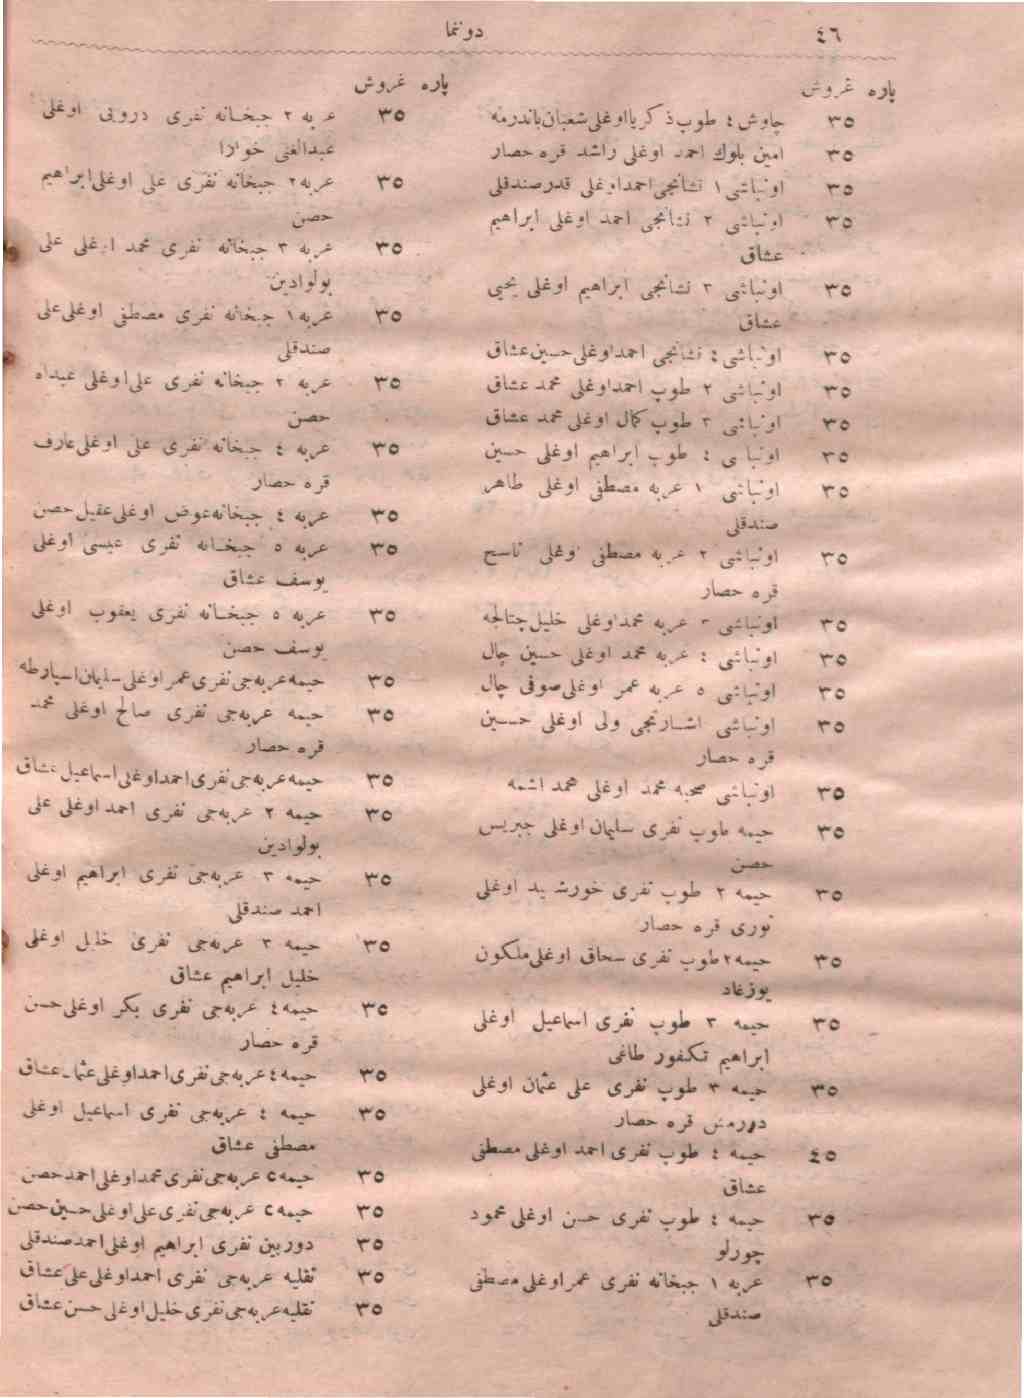 ٤٦
دونما
پاره غروش
٣٥ چاوش ٤ طوب ذكريا اوغلی شعبان باندرمه
٣٥ امين بلوك احمد اوغلی راشد قره حصار
٣٥ اونباشی ١ نشانجی احمد اوغلی قدر صندقلی
٣٥ اونباشی ٢ نشانجی احمد اوغلی ابراهيم
عشاق
٣٥ اونباشی ٣ نشانجی ابراهيم اوغلی يحيی
عشاق
٣٥ اونباشی ٤ نشانجی احمد اوغلی حسين عشاق
٣٥ اونباشی ٢ طوپ احمد اوغلی محمد عشاق
٣٥ اونباشی ٣ طوپ كمال اوغلی محمد عشاق
٣٥ اونباشی ٤ طوب ابراهيم اوغلی حسين
٣٥ اونباشی ١ عربه مصطفی اوغلی طاهر
صندقلی
٣٥ اونباشی ٢ عربه مصطفی اوغلی ناسح
قره حصار
٣٥ اونباشی ٣ عربه محمد اوغلی خليل چتالجه
٣٥ اونباشی ٤ عربه محمد اوغلی حسين چال
٣٥ اونباشی ٥ عربه عمر اوغلی صوفی چال
٣٥ اونباشی اشارتجی ولی اوغلی حسين
قره حصار
٣٥ اونباشی صحيه محمد اوغلی محمد اشمه
٣٥ حيمه طوپ نفری سليمان اوغلی
حصن
٣٥ حيمه ٢ طوپ نفری خورشيد اوغلی
نوری قره حصار
٣٥ حيمه ٢ طوپ نفری سحاق اوغلی ملكون
يوزغاد
٣٥ حيمه ٣ طوپ نفری اسماعيل اوغلی
ابراهيم تكفور طاغی
٣٥ حيمه ٣ طوپ نفری علی عثمان اوغلی
دورمش قره حصار
٤٥ حيمه ٤ طوپ نفری احمد اوغلی مصطفی
عشاق
٣٥ حيمه ٤ طوپ نفری حسن اوغلی محمود
چورلو
٣٥ عربه ١ جبخانه نفری عمر اوغلی مصطفی
صندقلی
پاره غروش
٣٥ عربه ٢ جبخانه نفری اوغلی
عبدالغنی
٣٥ عربه ٢ جبخانه نفری علی اوغلی ابراهيم
حصن
٣٥ عربه ٣ جبخانه نفری محمد اوغلی علی
بولوادين
٣٥ عربه ١ جبخانه نفری مصطفی اوغلی علی
صندقلی
٣٥ عربه ٢ جبخانه نفری علی اوغلی عبداه
حصن
٣٥ عربه ٤ جبخانه نفری علی اوغلی عارف
قره حصار
٣٥ عربه ٤ جبخانه عوض اوغلی عقيل حصن
٣٥ عربه ٥ جبخانه نفری عيسی اوغلی
يوسف عشاق
٣٥ عربه ٥ جبخانه نفری يعقوب اوغلی
يوسف حصن
٣٥ حيمه عربه‌جی نفری عمر اوغلی سليمان اسپارطه
٣٥ حيمه عربه‌جی نفری صالح اوغلی محمد
قره حصار
٣٥ حيمه عربه‌جی نفری احمد اوغلی اسماعيل عشاق
٣٥ حيمه ٢ عربه‌جی نفری احمد اوغلی علی
بولوادين
٣٥ حيمه ٣ عربه‌جی نفری ابراهيم اوغلی
احمد صندقلی
٣٥ حيمه ٣ عربه‌جی نفری خليل اوغلی
خليل ابراهيم عشاق
٣٥ حيمه ٤ عربه‌جی نفری بكر اوغلی حسن
قره حصار
٣٥ حيمه ٤ عربه‌جی نفری احمد اوغلی عثمان عشاق
٣٥ حيمه ٤ عربه‌جی نفری اسماعيل اوغلی
مصطفی عشاق
٣٥ حيمه ٥ عربه‌جی نفری محمد اوغلی احمد حصن
٣٥ حيمه ٥ عربه‌جی نفری علی اوغلی حسين حصن
٣٥ دوربين نفری ابراهيم اوغلی احمد صندقلی
٣٥ نقليه عربه‌جی نفری احمد اوغلی علی عشاق
٣٥ نقليه عربه‌جی نفری خليل اوغلی حسن عشاق